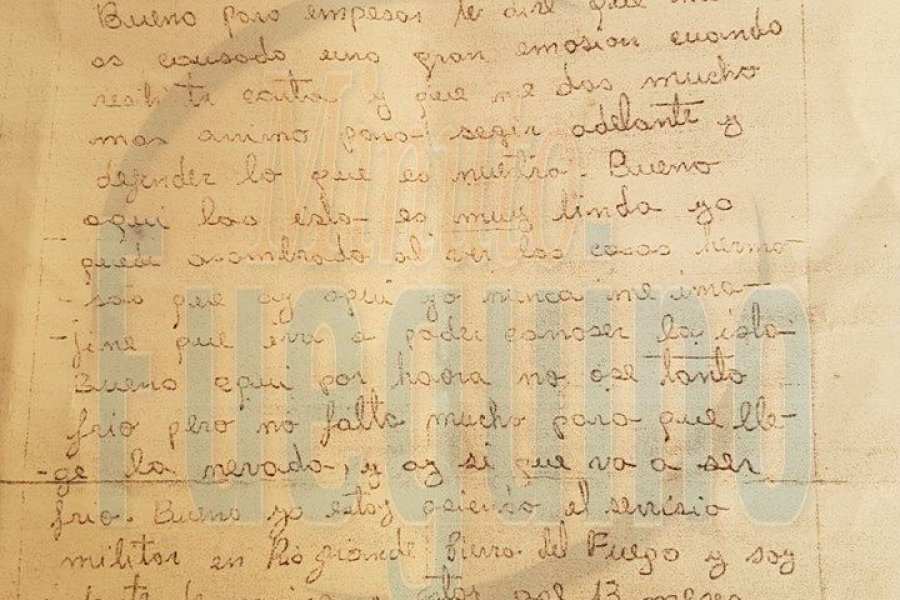 Bueno para empesar te dire que me
as causado una gran emosion cuando
resibi tu carta y que me das mucho
mas animo para segir adelante y
defender lo que es nuetro. Bueno
aqui las isla es muy linda yo
quede asombrado al ver las cosas hermo-
sas que ay aqui yo nunca me ima-
jine que iva a poder conoser la isla
Bueno aqui por haora no ase tanto
frio pero no falta mucho para que lle-
ge la nevada, y ay si que va a ser
frio. Bueno yo estoy asiendo el servisio
militar en Rio grande Tierra del Fuego y soy
13 meses
Minuto
Fueguino